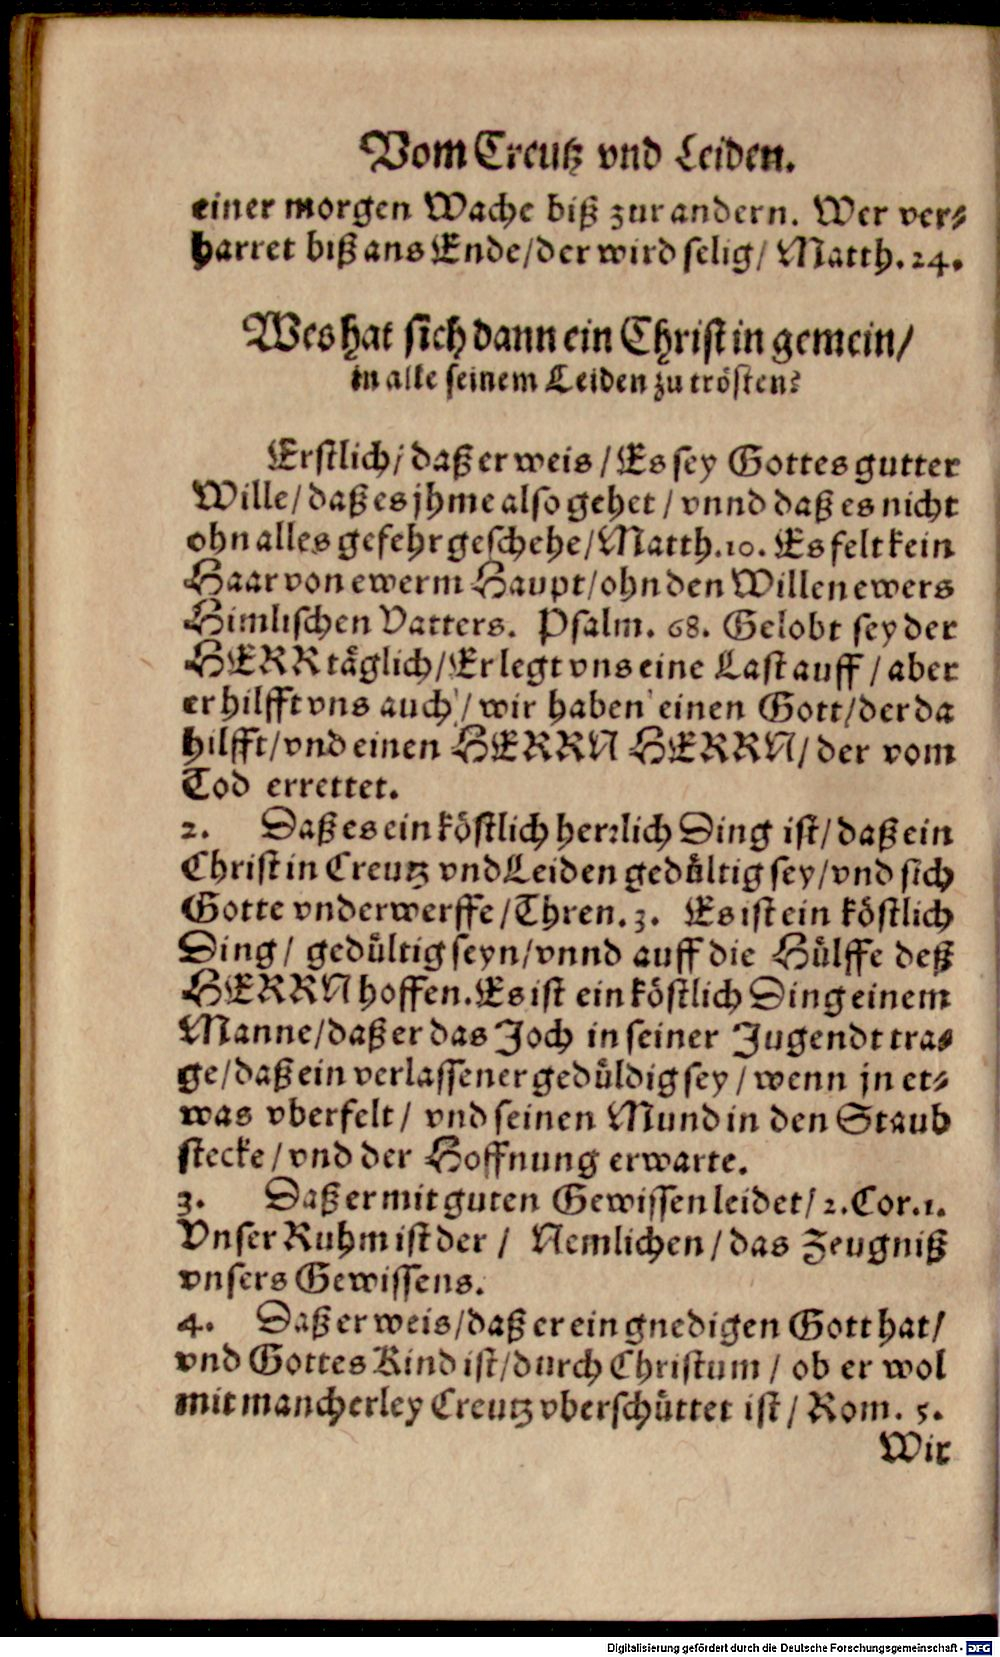 Vom Creutz vnd Leiden.
einer morgen Wache biß zur andern. Wer ver-
harret biß ans Ende/der wird selig/ Matth. 24.
Wes hat sich dann ein Christ in gemein/
in alle seinem Leiden zu trösten?
Erstlich/ daß er weis / Es sey Gottes gutter
Wille/ daß es jhme also gehet / vnnd daß es nicht
ohn alles gefehr geschehe/ Matth. 10. Es felt kein
Haar von ewerm Haupt/ohn den Willen ewers
Himlischen Vatters. Psalm. 68. Gelobt sey der
HERR täglich/Er legt vns eine Last auff / aber
er hilfft vns auch / wir haben einen Gott/der da
hilfft/vnd einen HERRN HERRN/ der vom
Tod errettet.
2. Daß es ein köstlich herrlich Ding ist/ daß ein
Christ in Creutz vnd Leiden gedültig sey/vnd sich
Gotte vnderwerffe/Thren. 3. Es ist ein köstlich
Ding/ gedültig seyn/vnnd auff die Hülffe deß
HERRN hoffen. Es ist ein köstlich Ding einem
Manne/daß er das Joch in seiner Jugendt tra-
ge/daß ein verlassener gedüldig sey / wenn jn et-
was vberfelt / vnd seinen Mund in den Staub
stecke / vnd der Hoffnung erwarte.
3. Daß er mit guten Gewissen leidet/ 2. Cor. 1.
Vnser Ruhm ist der / Nemlichen / das Zeugniß
vnsers Gewissens.
4. Daß er weis/daß er ein gnedigen Gott hat/
vnd Gottes Kind ist/durch Christum / ob er wol
mit mancherley Creutz vberschüttet ist / Rom. 5.
Wir
Digitalisierung gefördert durch die Deutsche Forschungsgemeinschaft - DFG